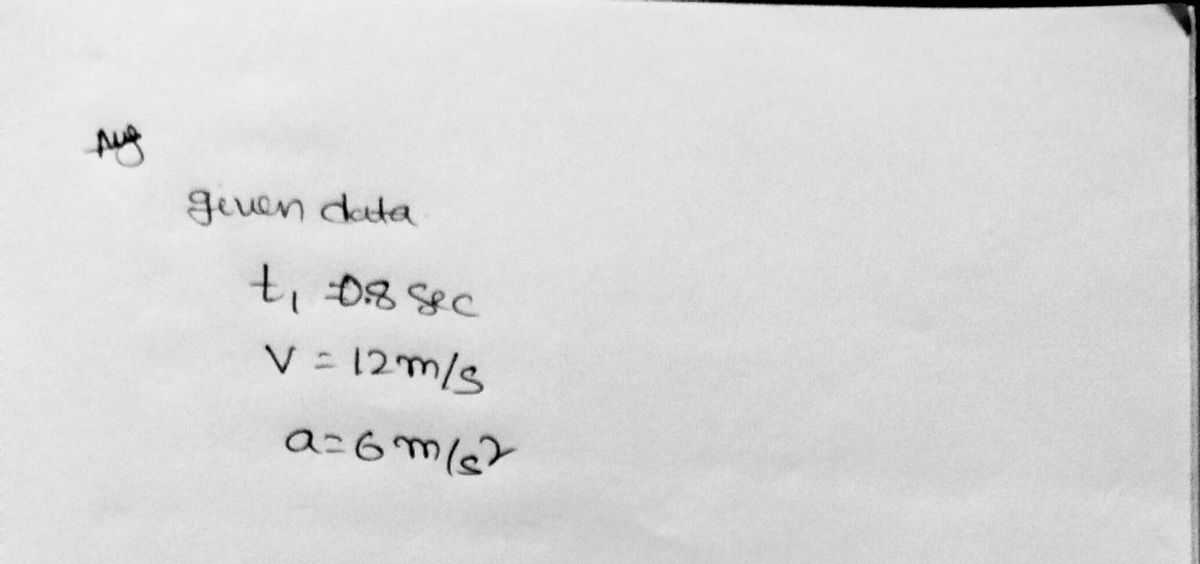 given data
t₁ = 0.8 sec
V = 12 m/s
a = 6 m/s²